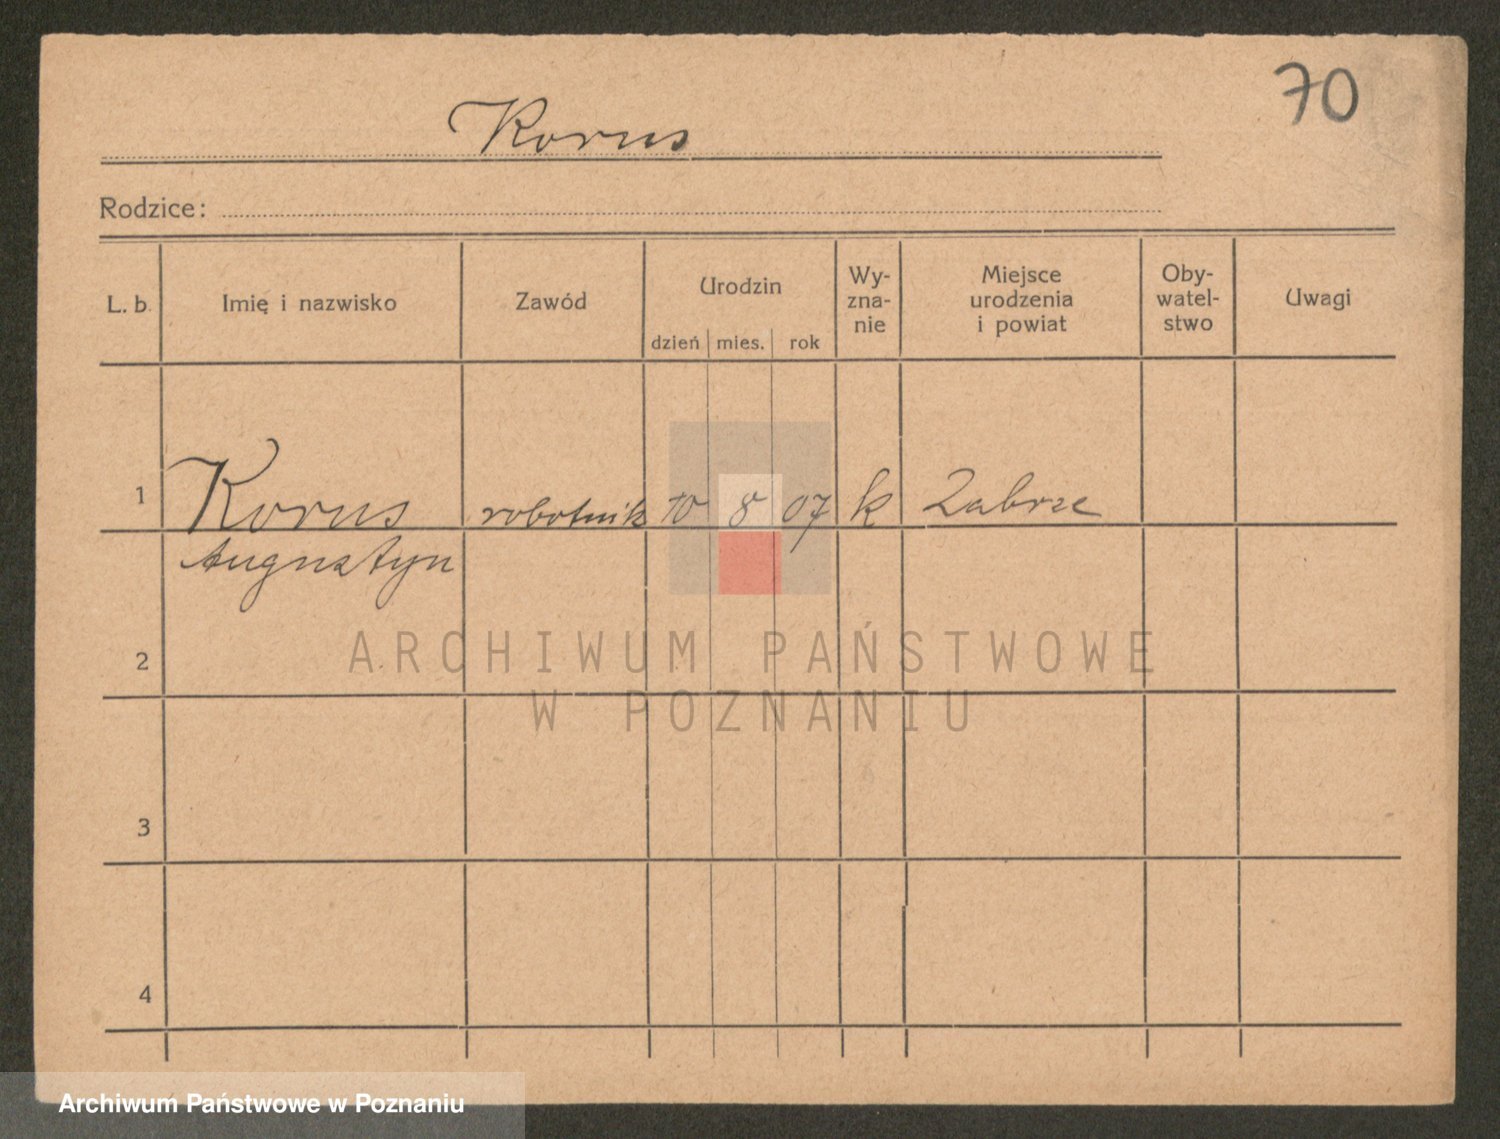 70
Korus
Rodzice:
L. b. Imię i nazwisko Zawód Urodzin Wy-zna-nie Miejsce urodzenia i powiat Oby-watel-stwo Uwagi
dzień mies. rok
1 Korus robotnik 10 8 07 k Zabrze
Augustyn
2
ARCHIWUM PAŃSTWOWE
W POZNANIU
3
4
Archiwum Państwowe w Poznaniu